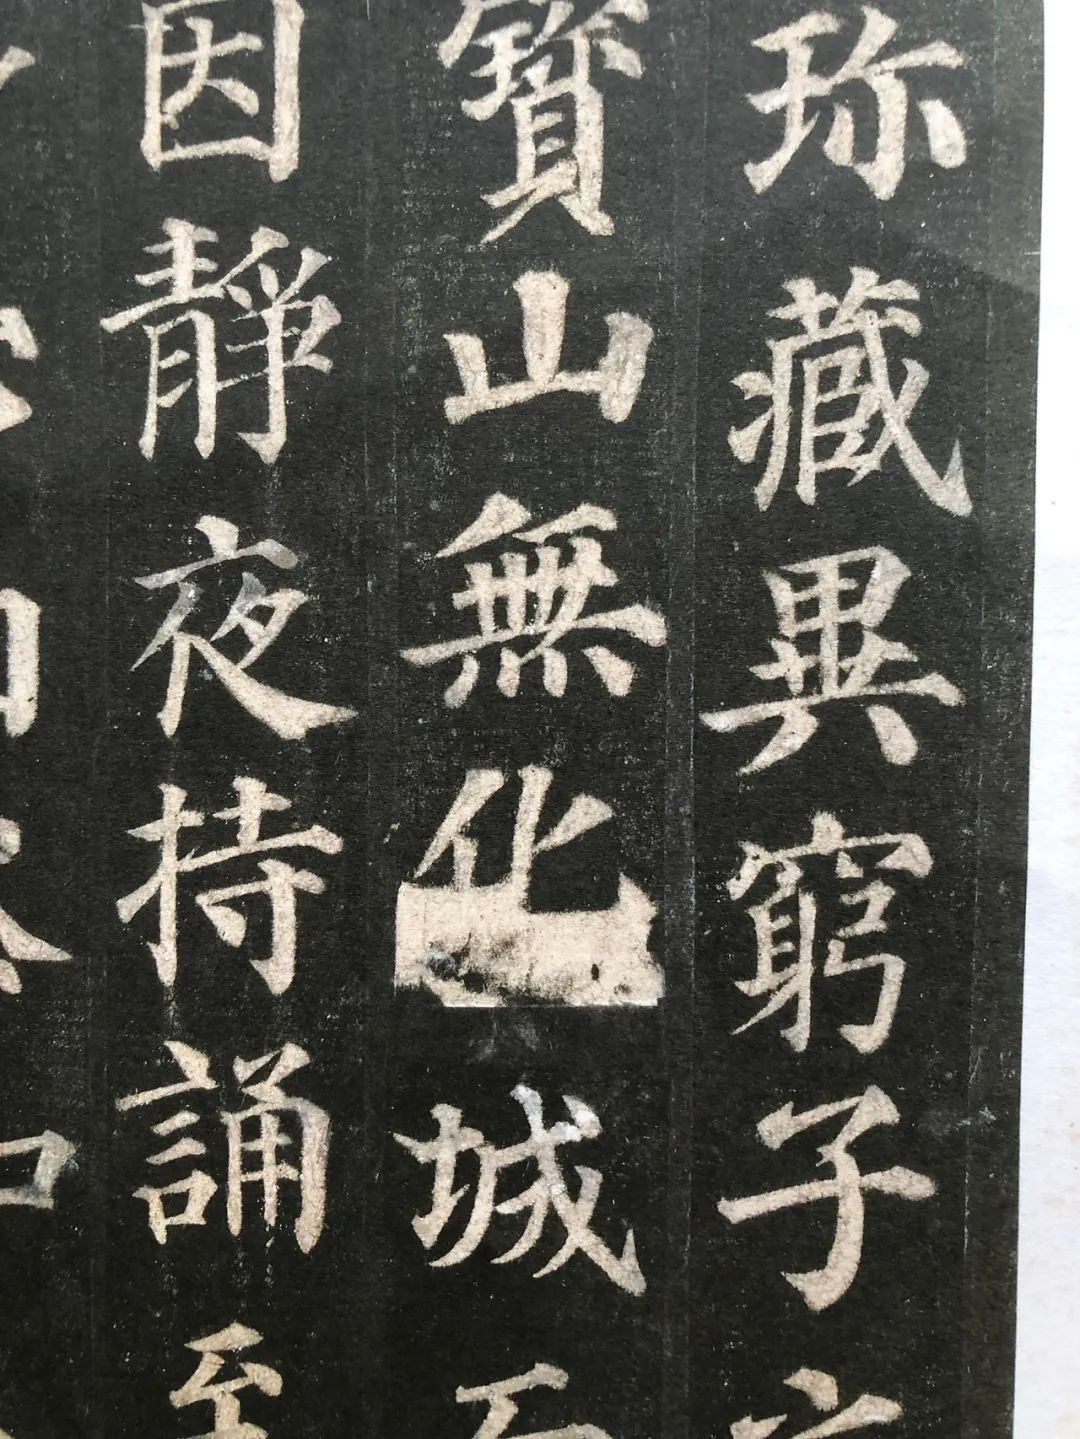 珎藏異窮子
寳山無化城
因靜夜持誦至